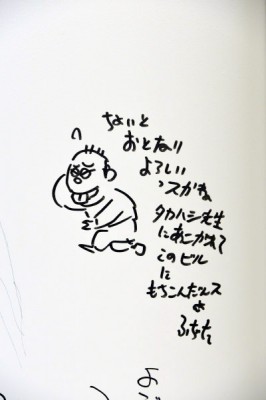 ちょいと
おとなり
よろしい
スかね
タカハシ先生
にあこがれて
このビル
に
もちこんだんス
よ